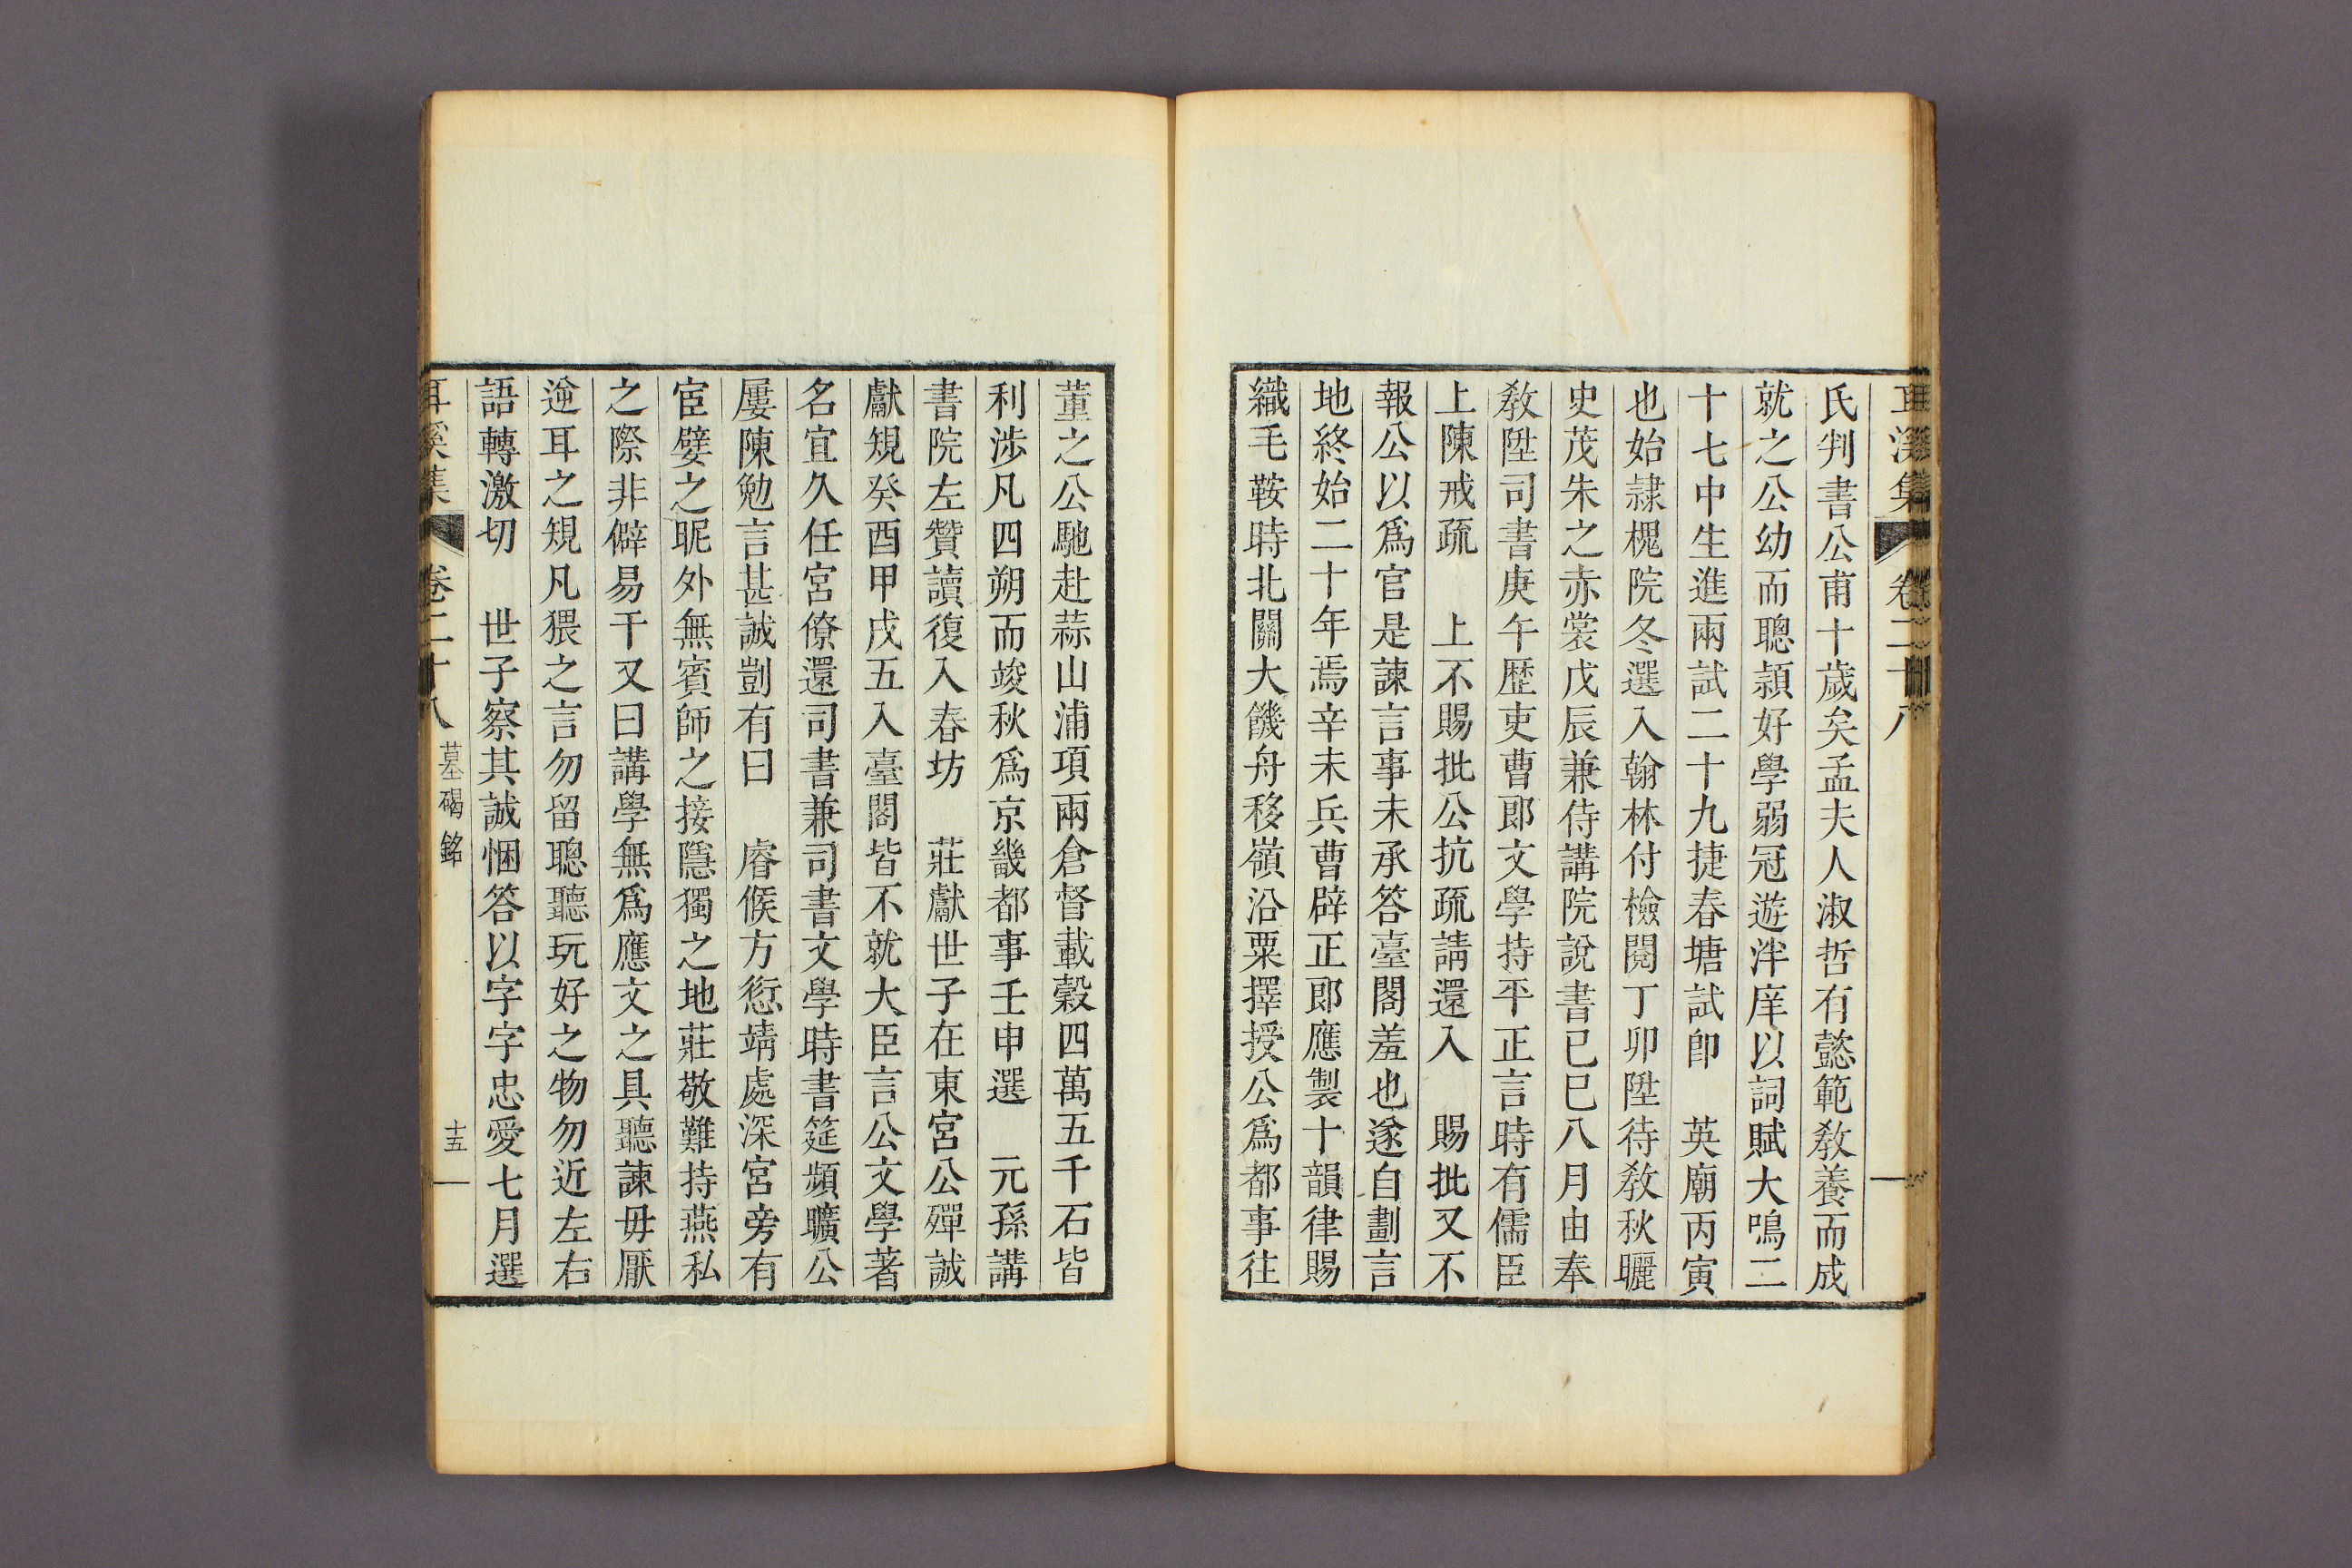 耳溪集 卷二十八
氏判書公甫十歲矣孟夫人淑哲有懿範敎養而成
就之公幼而聰穎好學弱冠遊泮庠以詞賦大鳴二
十七中生進兩試二十九捷春塘試卽 英廟丙寅
也始隷槐院冬選入翰林付檢閱丁卯陞待敎秋曬
史茂朱之赤裳戊辰兼侍講院說書已巳八月由奉
敎陞司書庚午歷吏曹郞文學持平正言時有儒臣
上陳戒疏 上不賜批公抗疏請還入 賜批又不
報公以爲官是諫言事未承答臺閣羞也遂自劃言
地終始二十年焉辛未兵曹辟正郞應製十韻律賜
織毛鞍時北關大饑舟移嶺沿粟擇授公爲都事往
董之公馳赴蒜山浦項兩倉督載穀四萬五千石皆
利涉凡四朔而竣秋爲京畿都事壬申選 元孫講
書院左贊讀復入春坊 莊獻世子在東宮公殫誠
獻規癸酉甲戌五入臺閣皆不就大臣言公文學著
名宜久任宮僚還司書兼司書文學時書筵頻曠公
屢陳勉言甚誠剴有曰 睿候方愆靖處深宮旁有
宦嬖之昵外無賓師之接隱獨之地莊敬難持燕私
之際非僻易干又曰講學無爲應文之具聽諫毋厭
逆耳之規凡猥之言勿留聰聽玩好之物勿近左右
語轉激切 世子察其誠悃答以字字忠愛七月選
耳溪集 卷二十八 墓碣銘 十五